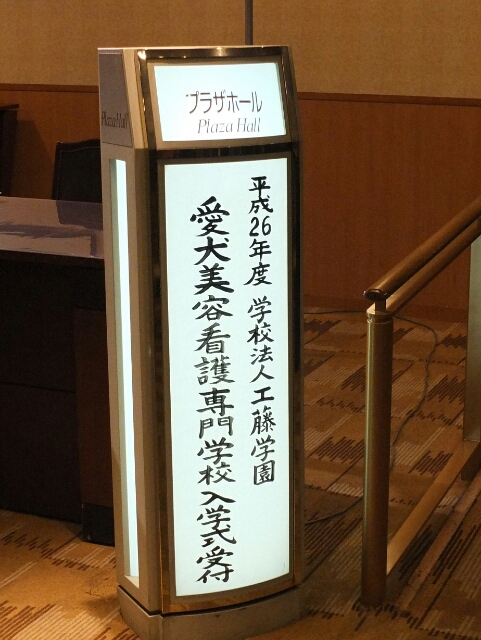 プラザホール
Plaza Hall
Plaza Hall
平成26年度 学校法人工藤学園
愛犬美容看護専門学校入学式受付